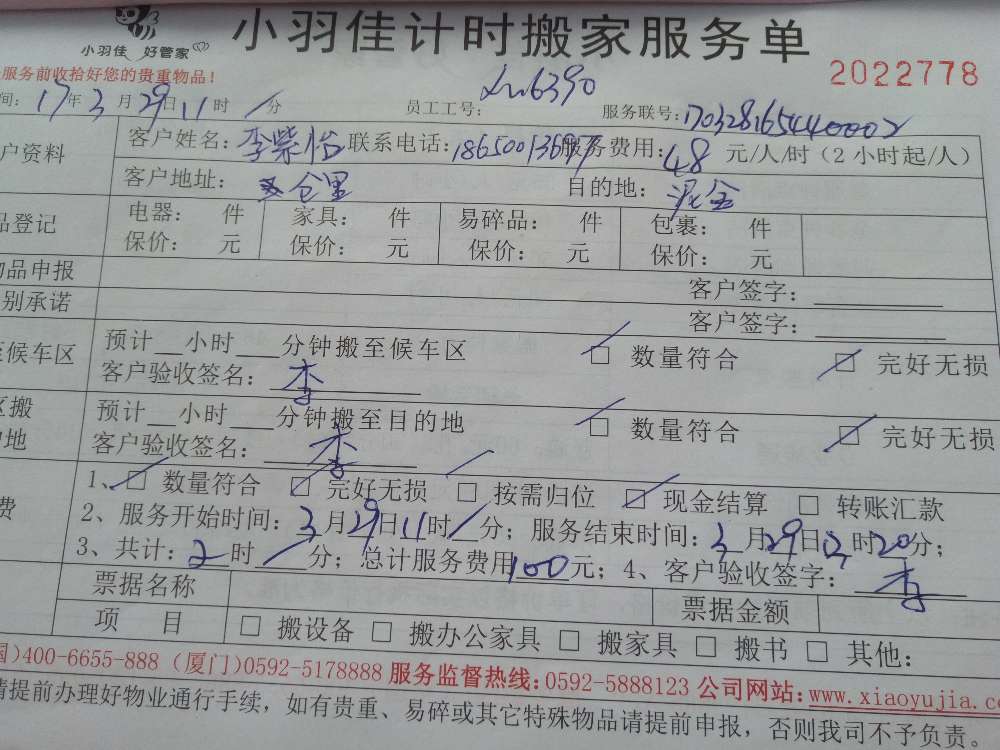 小羽佳 好管家
小羽佳计时搬家服务单
服务前收拾好您的贵重物品！
2022778
间：17年3月29日11时/分 员工工号： 服务联号：170328165440002
户资料
客户姓名：李紫怡 联系电话：服务费用：48元/人/时（2小时起/人）
客户地址： 仓里 目的地：泥金
品登记
电器： 件 家具： 件 易碎品： 件 包裹： 件
保价： 元 保价： 元 保价： 元 保价： 元
物品申报 客户签字：
别承诺 客户签字：
至候车区
预计__小时___分钟搬至候车区 □ 数量符合 □ 完好无损
客户验收签名：李
区搬
的地
预计__小时___分钟搬至目的地 □ 数量符合 □ 完好无损
客户验收签名：李
费
1、□ 数量符合 □ 完好无损 □ 按需归位 □ 现金结算 □ 转账汇款
2、服务开始时间：3月29日11时/分；服务结束时间：3月29日12时20分；
3、共计：2时/分；总计服务费用100元；4、客户验收签字：李
票据名称 票据金额
项 目 □ 搬设备 □ 搬办公家具 □ 搬家具 □ 搬书 □ 其他：
国)400-6655-888（厦门)0592-5178888 服务监督热线：0592-5888123 公司网站：www.xiaoyujia.co
请提前办理好物业通行手续，如有贵重、易碎或其它特殊物品请提前申报，否则我司不予负责。